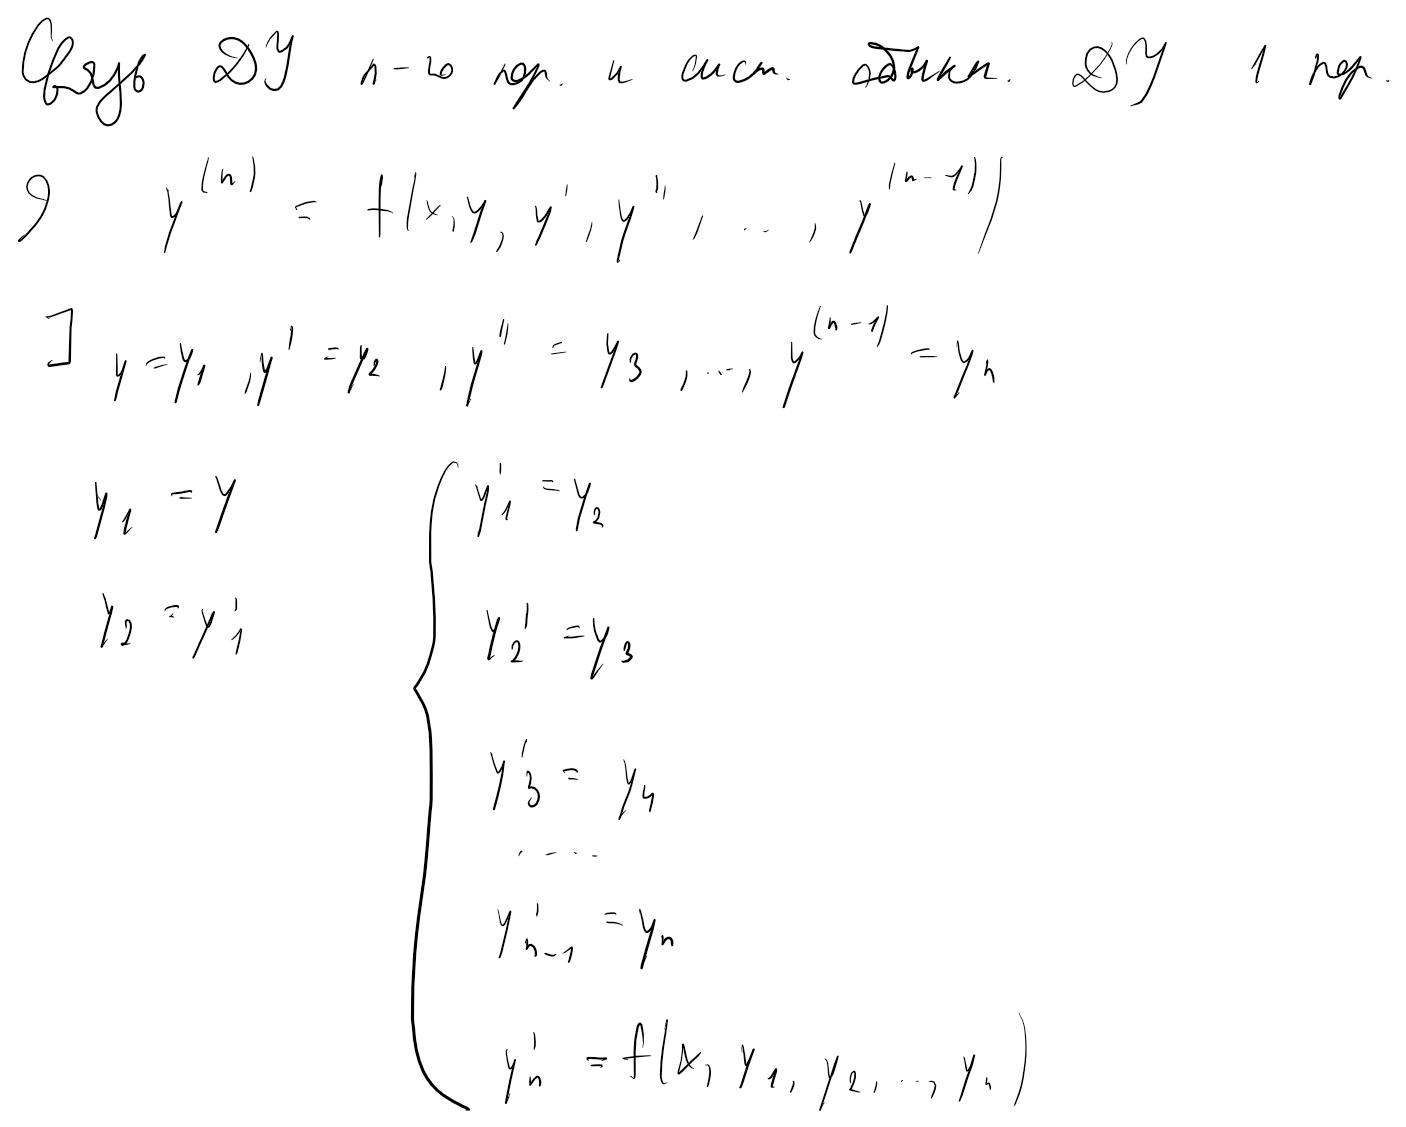 Связь ДУ n-го пор. и сист. обыкн. ДУ 1 пор.
y^(n) = f(x, y, y', y'', ..., y^(n-1))
] y = y₁, y' = y₂, y'' = y₃, ..., y^(n-1) = yₙ
y₁ = y
y₂ = y₁'
{ y₁' = y₂
y₂' = y₃
y₃' = y₄
.....
y'ₙ₋₁ = yₙ
yₙ' = f(x, y₁, y₂, ..., yₙ)